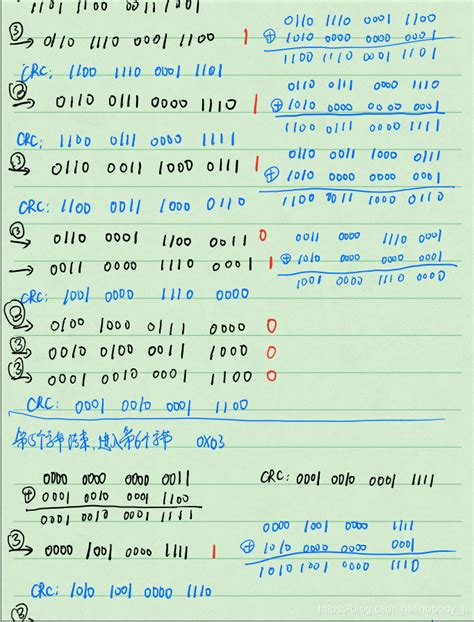 ③ 0110 1110 0001 1100 1
0110 1110 0001 1100
⊕ 1010 0000 0000 0001
1100 1110 0001 1101
CRC: 1100 1110 0001 1101
0110 0111 0000 1110 1
0110 0111 0000 1110
⊕ 1010 0000 0000 0001
1100 0111 0000 1111
CRC: 1100 0111 0000 1111
③ 0110 0011 1000 0111 1
0110 0011 1000 0111
⊕ 1010 0000 0000 0001
1100 0011 1000 0110
CRC: 1100 0011 1000 0110
③ 0110 0001 1100 0011 0
0011 0000 1110 0001 1
0011 0000 1110 0001
⊕ 1010 0000 0000 0001
1001 0000 1110 0000
CRC: 1001 0000 1110 0000
0100 1000 0111 0000 0
③ 0010 0100 0011 1000 0
③ 0001 0010 0001 1100 0
CRC: 0001 0010 0001 1100
第5个字节结束,进入第6个字节 0X03
0000 0000 0000 0011
⊕ 0001 0010 0001 1100
0001 0010 0001 1111
CRC: 0001 0010 0001 1111
③ 0000 1001 0000 1111 1
0000 1001 0000 1111
⊕ 1010 0000 0000 0001
1010 1001 0000 1110
CRC: 1010 1001 0000 1110